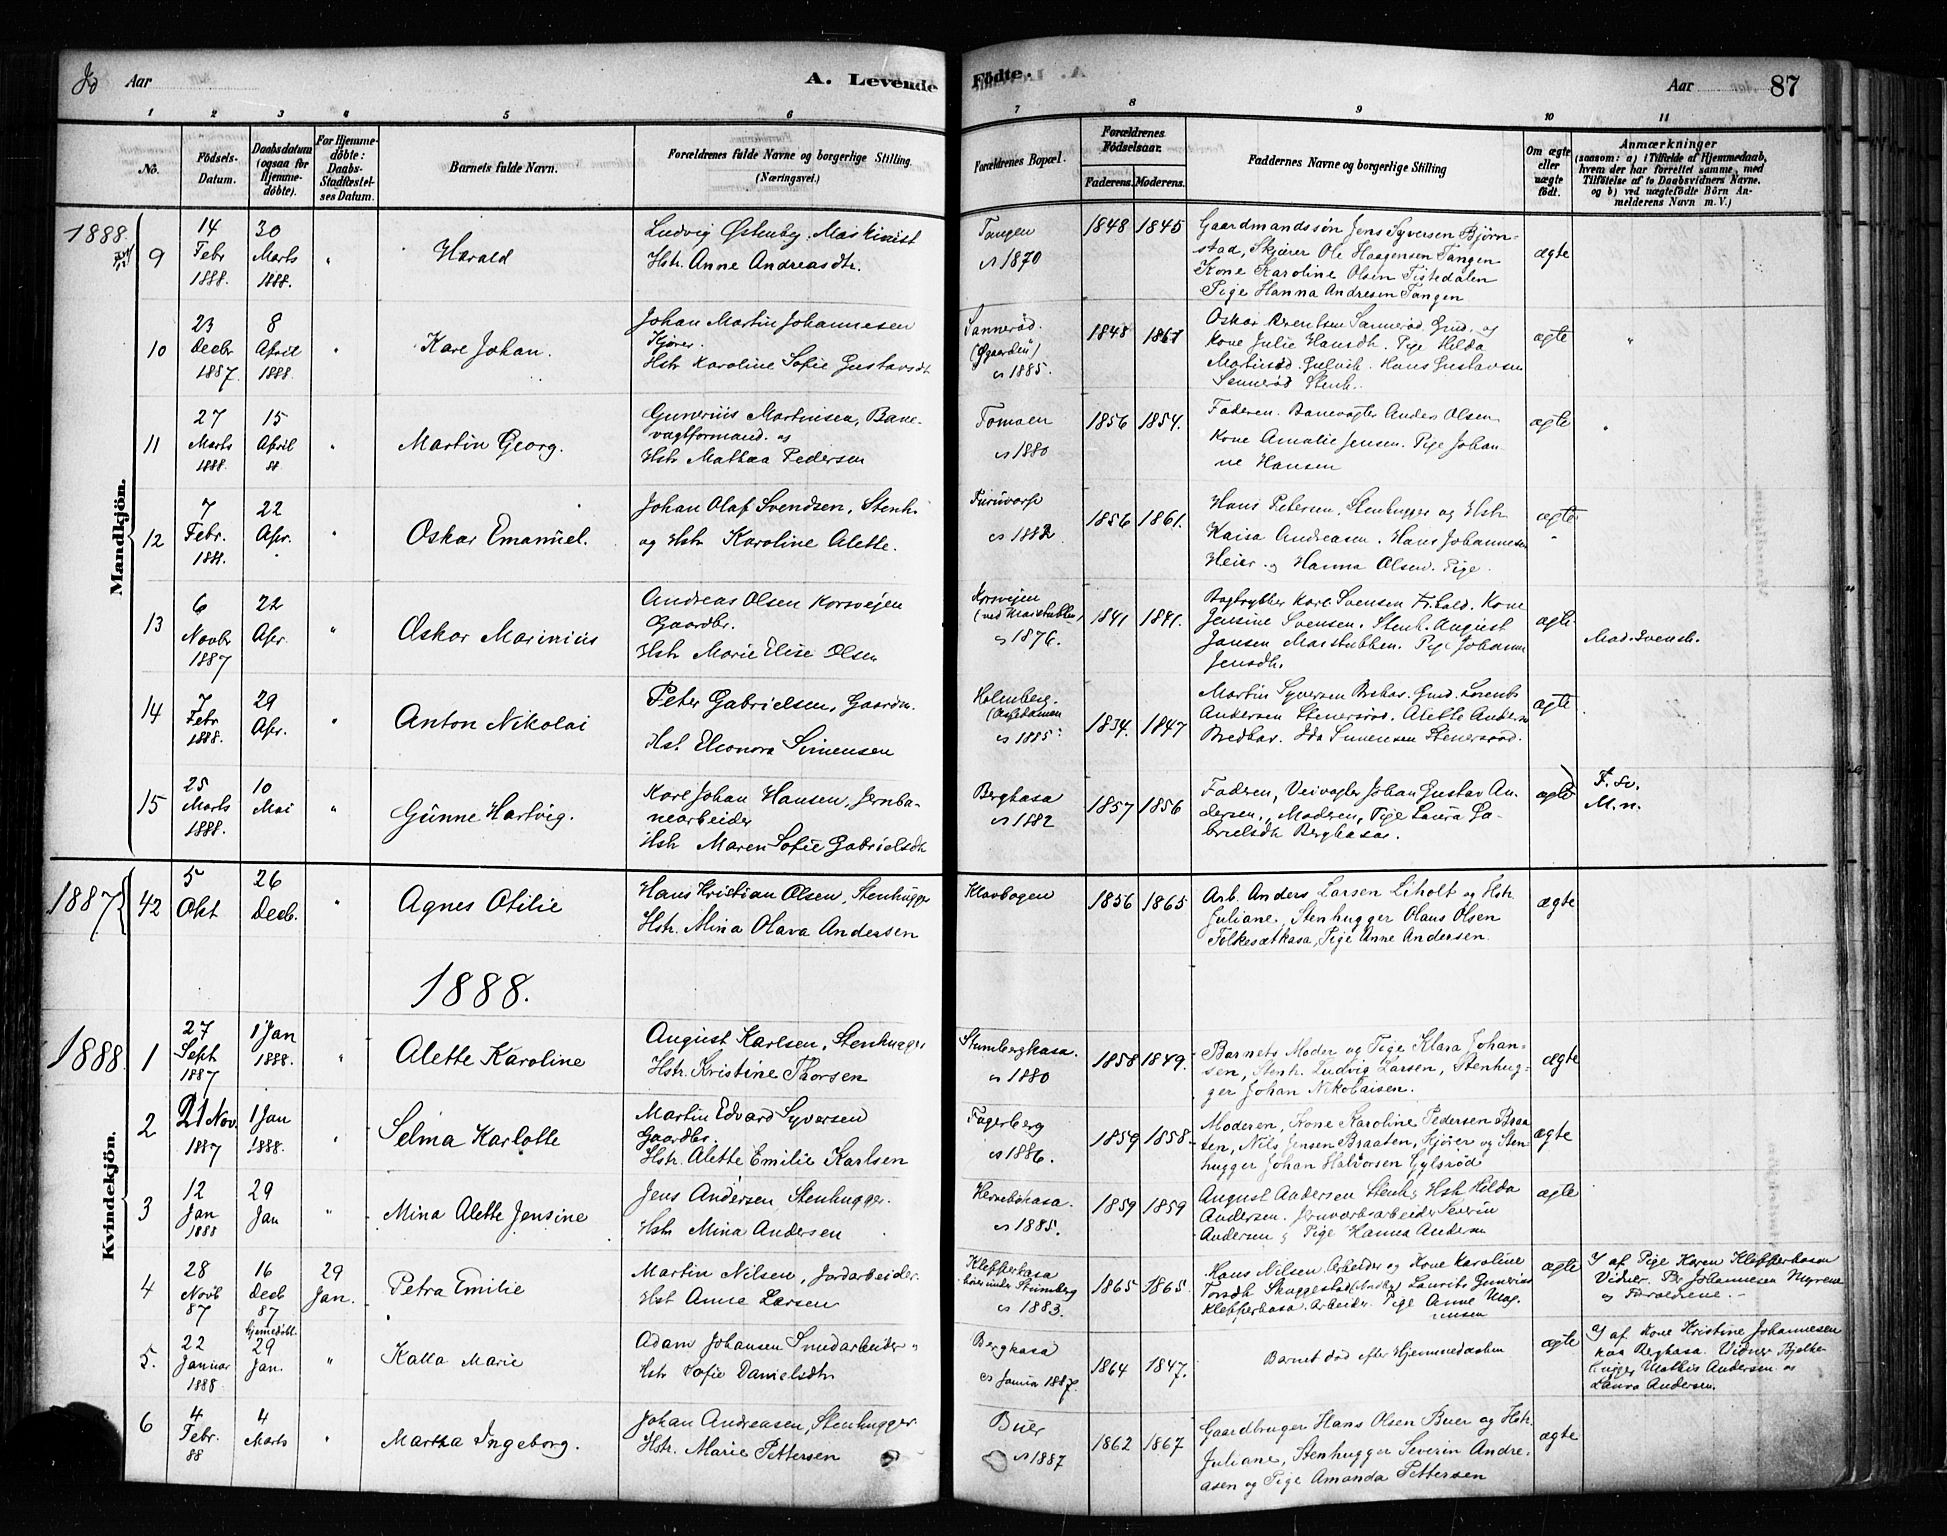 Aar
A. Levende
Födte.
Aar
87
1 2 3 4 5 6 7 8 9 10 11
No.
Födsels-
Datum.
Daabsdatum
(ogsaa for
Hjemme-
döbte).
For Hjemme-
döbte:
Daabs-
Stadfæstel-
ses Datum.
Barnets fulde Navn.
Forældrenes fulde Navne og borgerlige Stilling
(Næringsvei.)
Forældrenes Bopæl.
Forældrenes
Födselsaar.
Faderens. Moderens.
Faddernes Navne og borgerlige Stilling
Om ægte
eller
uægte
födt.
Anmærkninger
(saasom: a) i Tilfælde af Hjemmedaab,
hvem der har forrettet samme, med
Tilföielse af to Daabsvidners Navne,
og b) ved uægtefödte Börn An-
melderens Navn m. V.)
Mandkjön.
1888.
9
14
Febr
1888.
30
Marts
1888.
"
Harald
Ludvig Østenby, Maskinist
Hstr. Anne Andreasdtr.
Tangen
1870
1848 1845
Gaardmandssön Jens Syversen Björn-
stad, Skjærer Ole Haagensen Tangen
Kone Karoline Olsen Tistedalen
Pige Hanna Andresen Tangen
ægte
10
23
Decbr
1887.
8
April
1888.
"
Kare Johan.
Johan Martin Johannesen
Kjörer.
Hstr Karoline Sofie Gustavsdt
Sannerød.
(Øgaarden)
1885.
1848 1861
Oskar Arentsen Sannerød. Gmd. og
Kone Julie Hansdt. Pige Hilda
Hans Gustavsen
Sennerød Stenh.
ægte
"
11
27
Marts
1888.
15
April
88
"
Martin Georg.
Gunerius Martinsen, Bane-
vagtformand. og
Hstr Mathea Pedersen
Tomoen
1880
1856 1854.
Faderen. Banevogter Anders Olsen
Kone Amalie Jensen. Pige Johan
ne Hansen
ægte
12
7
Febr.
1888.
22
Apr.
"
Oskar Emanuel.
Johan Olaf Svendsen, Stenh.
og Hstr Karoline Alette.
Furuvorp
1882
1856 1861.
Hans Petersen, Stenhugger og Hstr
Kaisa Andreasen. Hans Johannesen
Heier. og Hanna Olsen. Pige.
ægte
13
6
Novbr
1887
22
Apr.
"
Oskar Marinius
Andreas Olsen Korsvejen
Gaardbr.
Hstr Marie Elise Olsen
Korsvejen
(ved Marstubben)
1876.
1841 1841.
Karl Svensen Kone
Jensine Svensen. Stenh. August
Jansen Marstubben. Pige Johanne
Jensdt.
ægte
Mod. Svensk.
14
7
Febr
1888.
29
Apr.
"
Anton Nikolai
Peter Gabrielsen, Gaardm.
Hst Eleonora Simensen
Holmberg.
1885
1834. 1847
Martin Syversen Gmd. Lorents
Andersen Stenersrød. Alette Anders
Bredbar. Ida Simensen Stenersrød.
ægte
15
25
Marts
1888.
10
Mai
"
Gunne Hartvig.
Karl Johan Hansen, Jernba-
nearbeider
Hstr Maren Sofie Gabrielsdt
Bergkasa
1882
1857 1856
Faderen, Veivogter Johan Gustav An-
dersen, Moderen, Pige Laura Ga-
brielsdt Bergkasa.
ægte
F. sv.
M. n.
1887
42
5
Okt
26
Decb.
"
Agnes Otilie
Hans Kristian Olsen, Stenhugger
Hstr. Mina Olava Andersen
Klavbogen
1856 1865
Arb. Anders Larsen Liholt og Hstr
Juliane, Stenhugger Olaus Olsen
Folkesætkasa, Pige Anne Andersen.
ægte
1888.
Kvindekjön.
1888
1
27
Sept
1887
1 Jan
1888.
"
Alette Karoline
August Karlsen, Stenhugger
Hstr. Kristine Thorsen
Strimbergkasa.
1880
1858 1849.
Barnets Moder og Pige Klara Johan-
sen, Stenh. Ludvig Larsen, Stenhug-
ger Johan Nikolaisen.
ægte
2
21 Nov.
1887
1 Jan
1888.
"
Selma Karlotte
Martin Edvard Syversen
Gaardbr.
Hstr. Alette Emilie Karlsen
Fagerberg
1886.
1859 1858
Moderen, Kone Karoline Pedersen Braa-
ten, Nils Jensen Braaten, Kjörer og Sten-
hugger Johan Halvorsen Gylsrød
ægte
3
12
Jan
1888
29
Jan
"
Mina Alette Jensine
Jens Andersen Stenhugger.
Hstr Mina Andersen
Hernebskasa.
1885.
1859 1859
August Andersen Stenh. Hst Hilda
Andersen. Jernværksarbeider Severin
Andersen og Pige Hanna Andersen
ægte
4
28
Novb
87
16
Decb
87
29
Jan.
Petra Emilie
Martin Nilsen, Jordarbeider.
Hst Anne Larsen
Klefferkasa
1883.
1865 1865.
Hans Nilsen Arbeider og Kone Karoline
Torsdt Skuggestad Laurits Gunerius
Klefferkasa. Arbeider. Pige Anne Mag-
nusen
ægte
a) af Pige Karen Klefferkasa
Vidner. Br. Johannesen Myrene
og Forældrene. —
5.
22
Januar
1888
Hjemmedöbt
29
Jan.
"
Kalla Marie
Adam Johansen Smedarbeider
Hstr Sofie Danielsdtr
Bergkasa
Januar 1887.
1864 1847.
Barnet död efter Hjemmedaaben
ægte
a) af Kone Kristine Johannesen
paa Bergkasa. Vidner Bjelke-
hugger Mathis Andersen og
Laura Andersen.
6
4
Febr.
88
4
Marts
"
Martha Ingeborg.
Johan Andreasen, Stenhugger
Hstr. Marie Pettersen
Buer
1887
1862 1867
Gaardbruger Hans Olsen Buer og Hstr.
Juliane, Stenhugger Severin Andre-
asen og Pige Amanda Pettersen
ægte